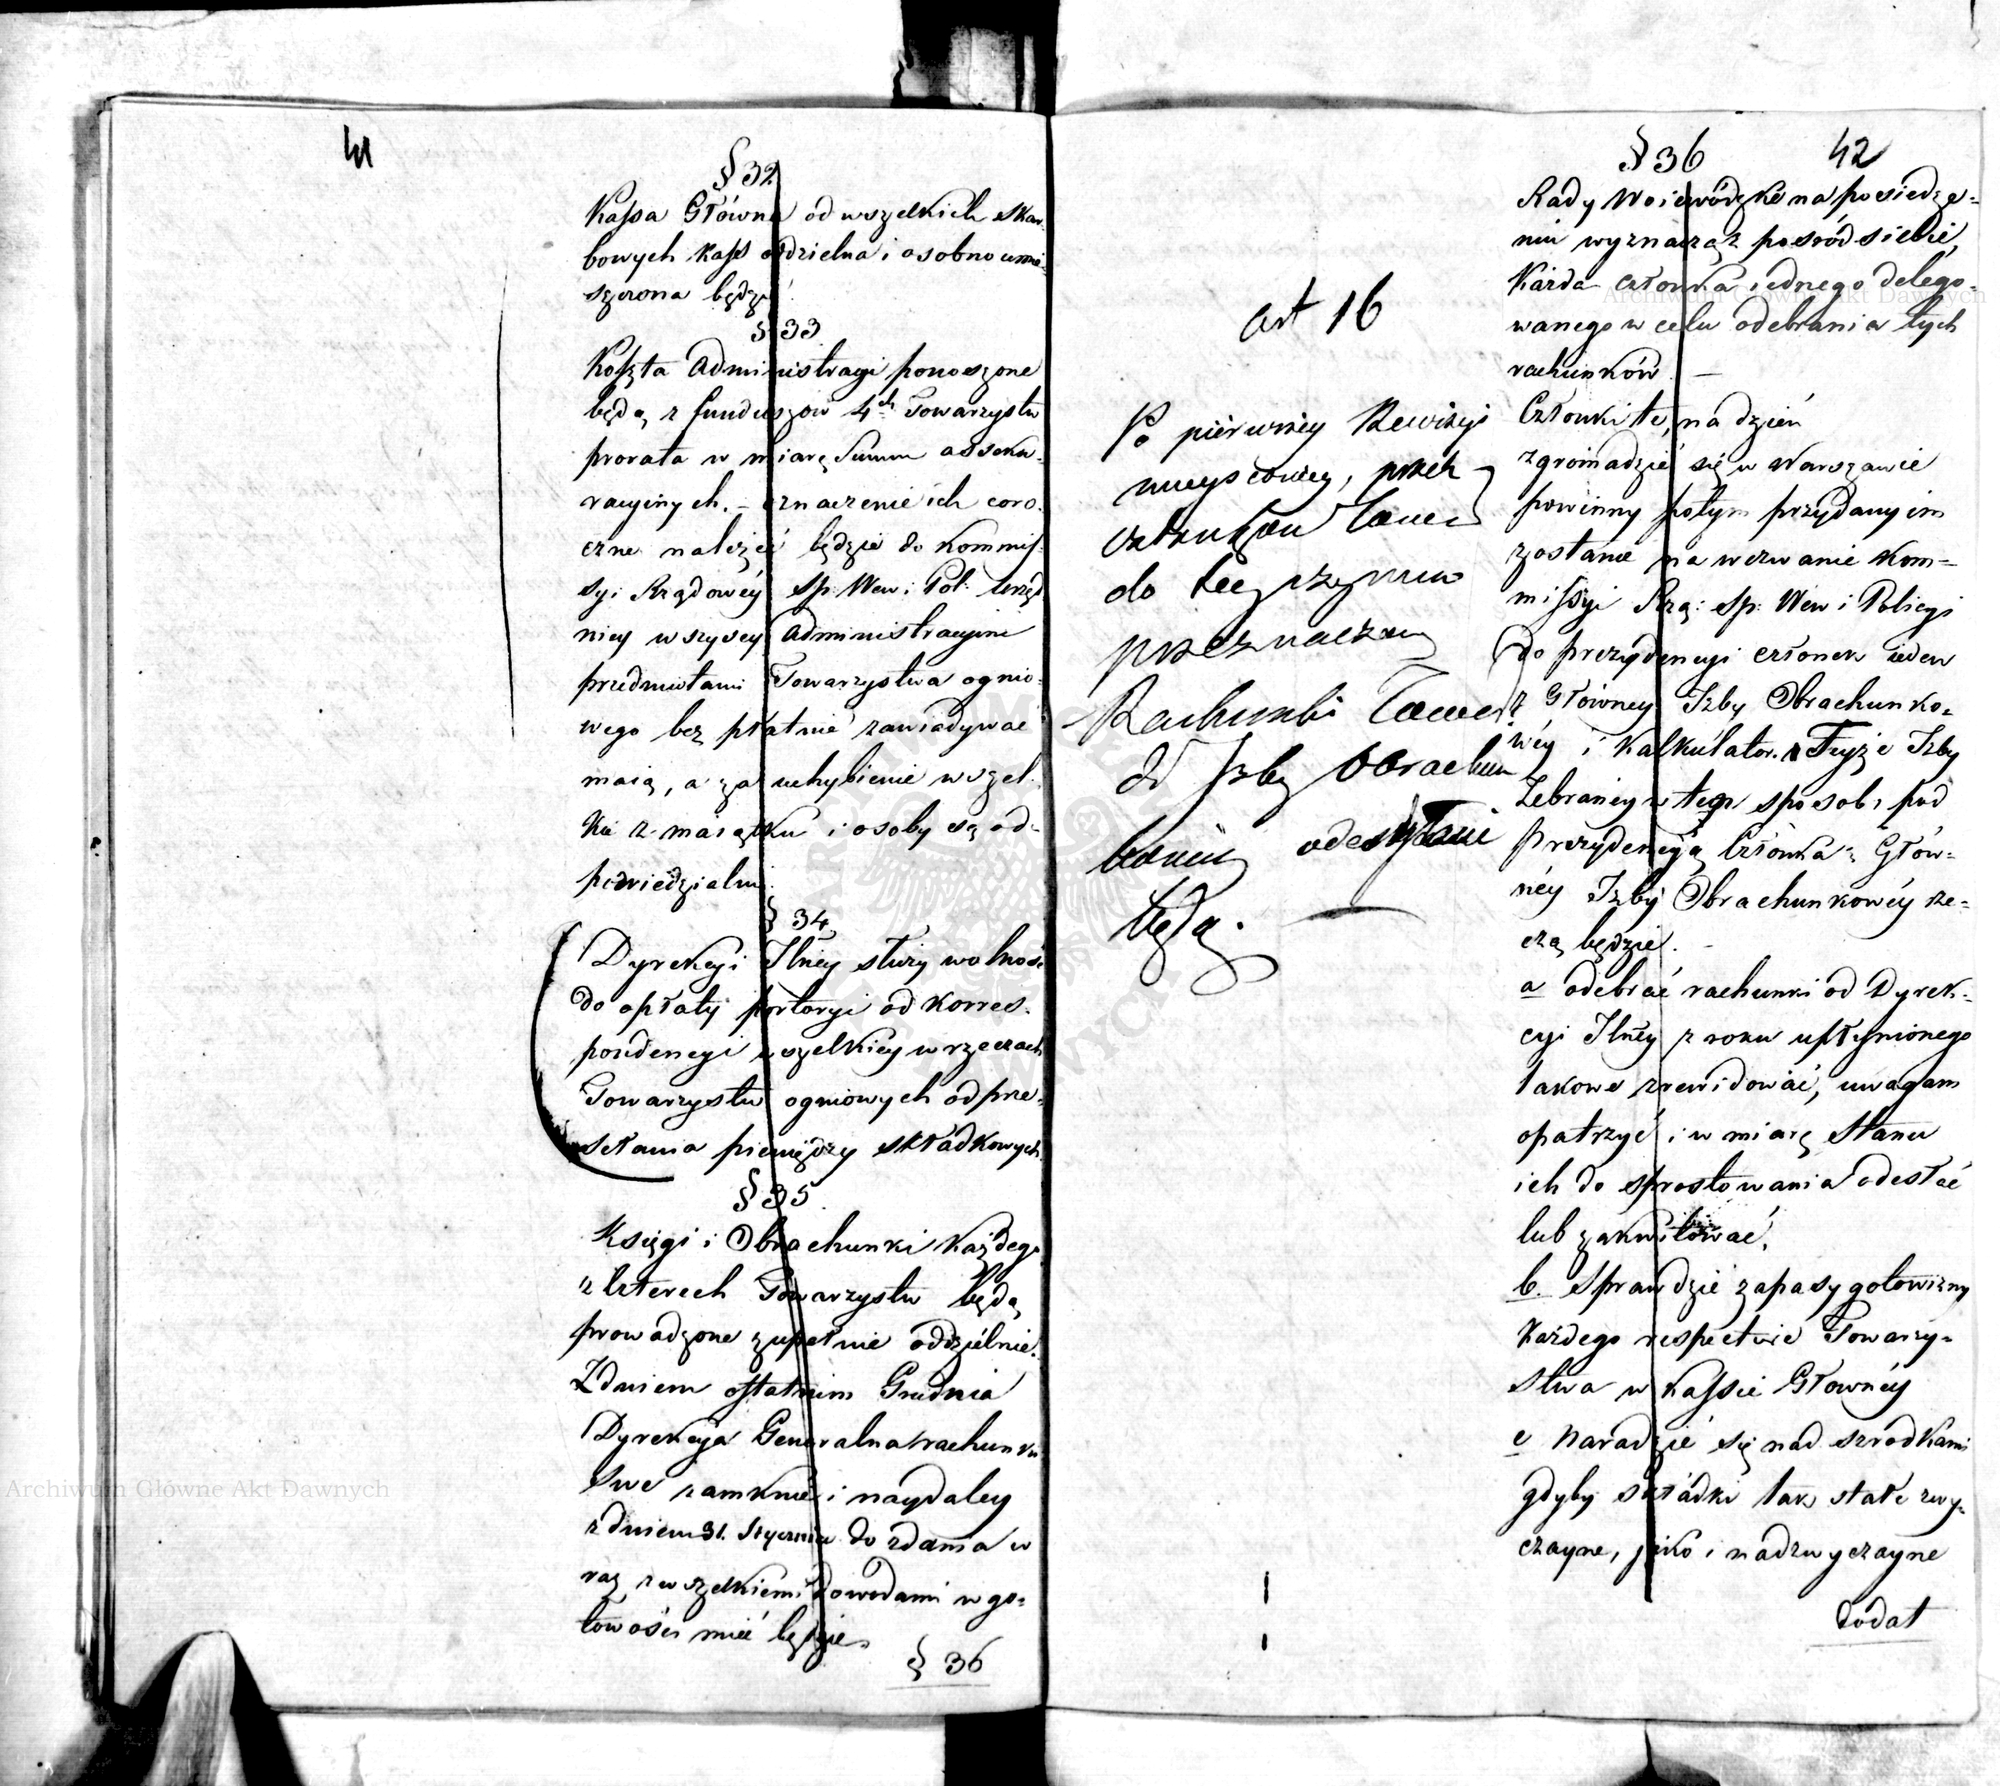 41
§ 32
Kassa Główna od wszelkich skar-
bowych Kass oddzielna i osobno umie-
szczona będzie.
§ 33
Koszta Administracyi ponoszone
będą z funduszów 4ch Towarzystw
prorata w miarę Summ asseku-
racyinych. – oznaczenie ich coro-
czne należeć będzie do Kommis-
syi Rządowéy Sp: Wew: i Pol: Urzęd
nicy wszyscy Administracyini
przedmiotami Towarzystwa ognio-
wego bezpłatnie zawiadywać
maią, a za uchybienie wszel-
kie z maiątku i osoby są od-
powiedzialni.
§ 34
Dyrekcyi Jlnéy służy wolność
do opłaty portoryi od korres-
pondencyi wszelkiey w rzeczach
Towarzystw ogniowych od prze-
słania pieniędzy składkowych.
§ 35
Księgi i Obrachunki każdego
z czterech Towarzystw będą
prowadzone zupełnie oddzielnie.
Z dniem ostatnim Grudnia
Dyrekcya Generalna rachunki
swe zamknie i naydaley
z dniem 31. Stycznia do zdania w
raz z wszelkiemi dowodami w go-
towości mieć będzie.
§ 36
42
art 16
Po pierwszey Rewizyi
mieyscowey, przez
członków
do tey
przeznaczony
Rachunki
do Izby Obrachun
kowéy odesłane
będą. —
§ 36
Rady Woiewódzkie na posiedze-
niu wyznaczą z pośród siebie,
Każda członka iednego delego-
wanego w celu odebrania tych
rachunków. —
Członki te, na dzień
zgromadzić się w Warszawie
powinny potym przydanym
zostanie na wezwanie Kom-
missyi Rzą: Sp: Wew i Policyi
do prezydencyi członek ieden
z Główney Izby Obrachunko-
wéy i Kalkulator. Teyże Izby
Zebraney w ten sposób pod
prezydencyą Członka z Głów-
néy Izby Obrachunkowéy rze-
czą będzie. –
a odebrać rachunki od Dyrek-
cyi Jlnéy z roku upłynionego
takowe zrewidować, uwagam
opatrzyć i w miarę Stanu
ich do sprostowania odesłać
lub zakwitować,
b. Sprawdzić zapasy gotowizny
każdego respective Towarzy-
stwa w Kassie Główney
c Naradzić się nad srzodkami
gdyby składki tak stałe zwy-
czayne, jako i nadzwyczayne
dodat